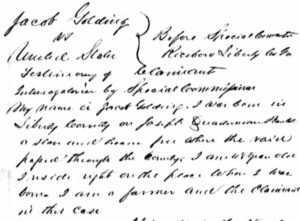 Jacob Golding
vs
United States
Before Special Commr
Riceboro Liberty Co Ga
Testimony of Claimant
Interogatories by Special Commissioner
My name is Jacob Golding. I was born in
Liberty County on Joseph Quarterman
a slave and became free when the raid
passed through the county. I am years old
I reside right on the place where I was
born I am a farmer and the Claimant
in this case